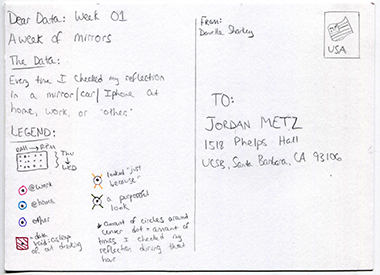 Dear Data: Week 01
A week of mirrors
The Data:
Every time I checked my reflection
in a mirror/car/Iphone at
home, work, or "other."
LEGEND:
8AM → 8PM
Thu
↓
WED
@work
@home
other
= data
void: asleep
or not checking
looked "just
because"
a purposeful
look
* amount of circles around
center dot = amount of
times I checked my
reflection during that
hour
From:
USA
TO:
JORDAN METZ
1518 Phelps Hall
UCSB, Santa Barbara, CA 93106